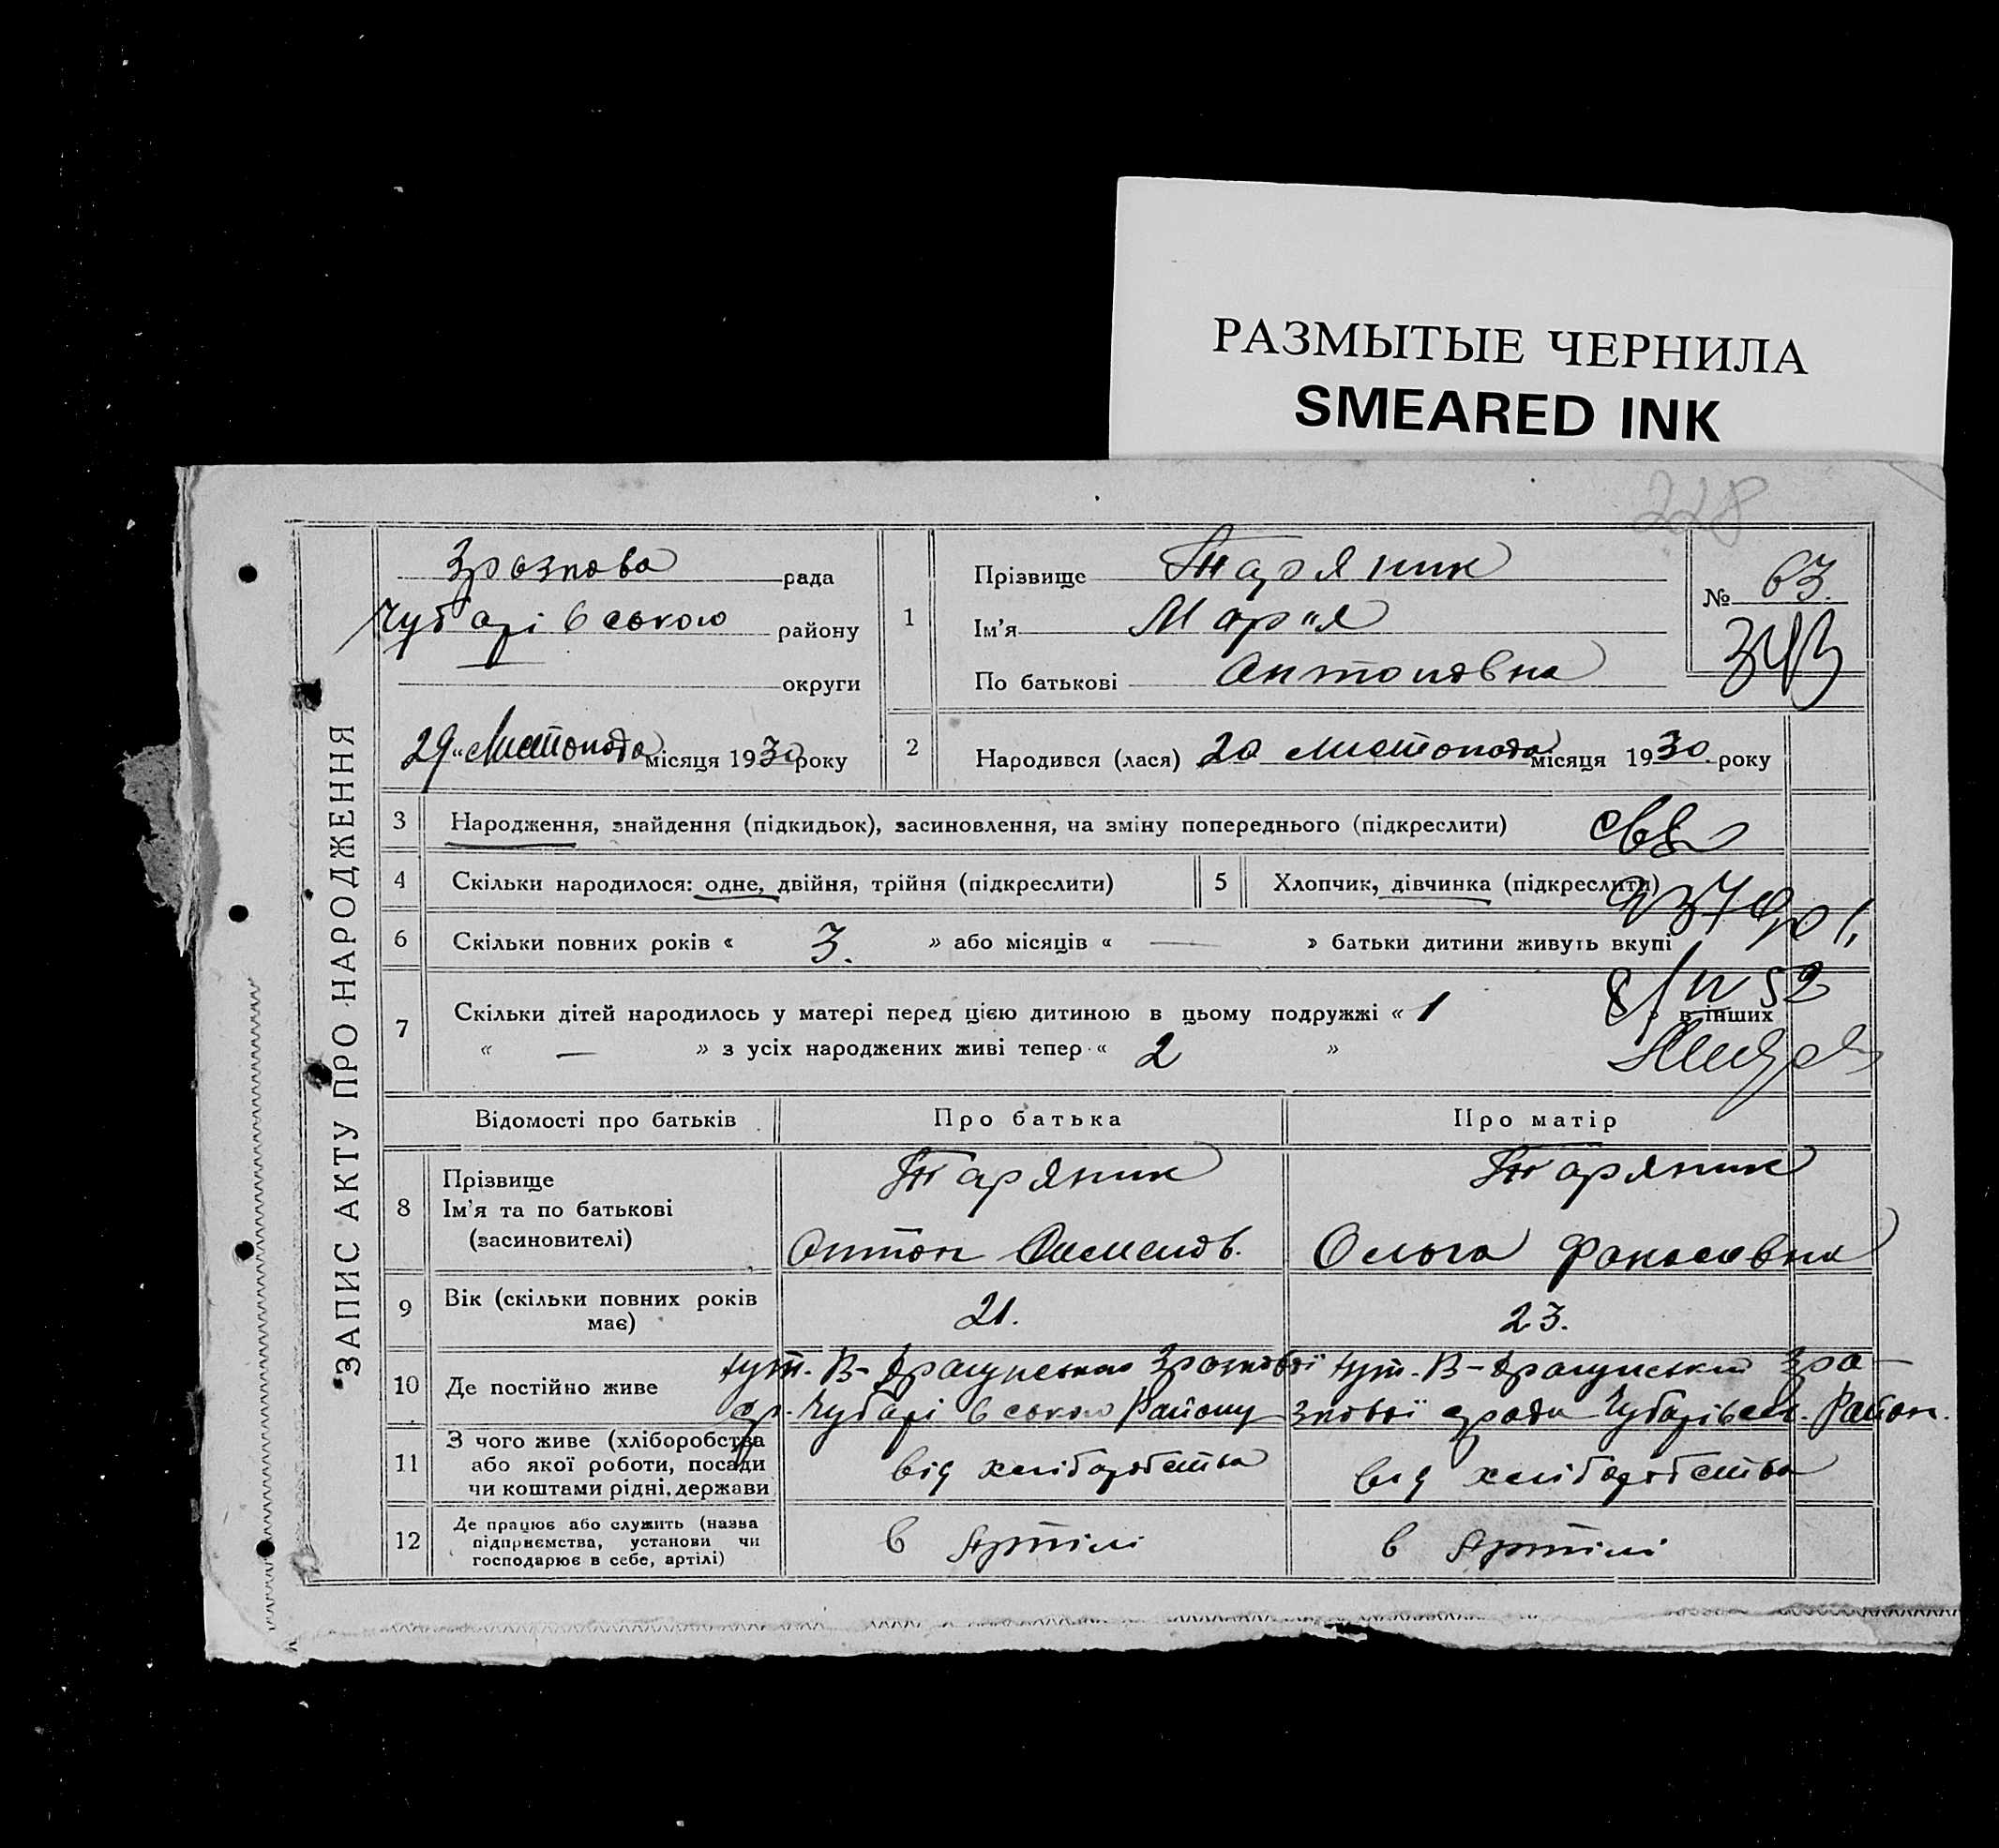 РАЗМЫТЫЕ ЧЕРНИЛА
SMEARED INK
228
ЗАПИС АКТУ ПРО НАРОДЖЕННЯ
Зразкова рада
Чубарівського району
округи
29 „Листопада місяця 1930 року
1
Прізвище Таряник
Ім’я Мар"я
По батькові Антонівна
№ 63.
2
Народився (лася) 20 листопада місяця 1930 року
3 Народження, знайдення (підкидьок), засиновлення, на зміну попереднього (підкреслити)
4 Скільки народилося: одне, двійня, трійня (підкреслити)
5 Хлопчик, дівчинка (підкреслити)
6 Скільки повних років « 3. » або місяців « — » батьки дитини живуть вкупі
7 Скільки дітей народилось у матері перед цією дитиною в цьому подружжі « 1 » в інших
« — » з усіх народжених живі тепер « 2 »
Відомості про батьків
Про батька
Про матір
8 Прізвище
Ім’я та по батькові
(засиновителі)
Таряник
Антон
Таряник
Ольга
9 Вік (скільки повних років
має)
21.
23.
10 Де постійно живе
хут. В-Драгунський Зразкової
с/р. Чубарівського Району
хут. В-Драгунський Зра-
зкової с/ради Чубарівськ. Район.
11 З чого живе (хліборобства
або якої роботи, посади
чи коштами рідні, держави
від хліборобства
від хліборобства
12 Де працює або служить (назва
підприємства, установи чи
господарює в себе, артілі)
в Артілі
в Артілі